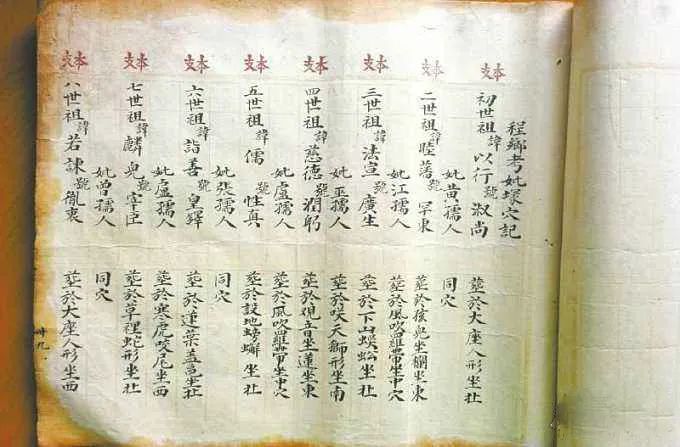 程鄉考妣墳穴記
本支
初世祖諱以行號淑尚 葬於大座人形坐北
妣黃孺人 同穴
本支
二世祖諱睦藩號罕東 葬於猿坐棚坐東
妣江孺人 葬於風吹羅帶坐中穴
本支
三世祖諱法宣號廣生 葬於下山蜈蚣坐北
妣巫孺人 葬於咲天獅形坐南
本支
四世祖諱慈德號潤躬 葬於观音坐蓮坐東
妣盧孺人 葬於風吹羅帶坐中穴
本支
五世祖諱儒號性真 葬於設地螃蠏坐北
妣張孺人 同穴
本支
六世祖諱詣善號皇鐸 葬於蓮葉盖坐北
妣盧孺人 葬於寒虎咬尼坐西
本支
七世祖諱麟兒號宰臣 葬於草裡蛇形坐北
妣曾孺人 同穴
本支
八世祖諱若諫號胤衷 葬於大座人形坐西
廿九